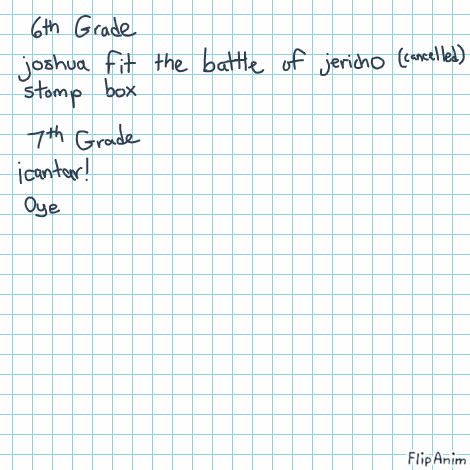 6th Grade
joshua fit the battle of jericho (cancelled)
stomp box
7th Grade
¡cantar!
Oye
FlipAnim